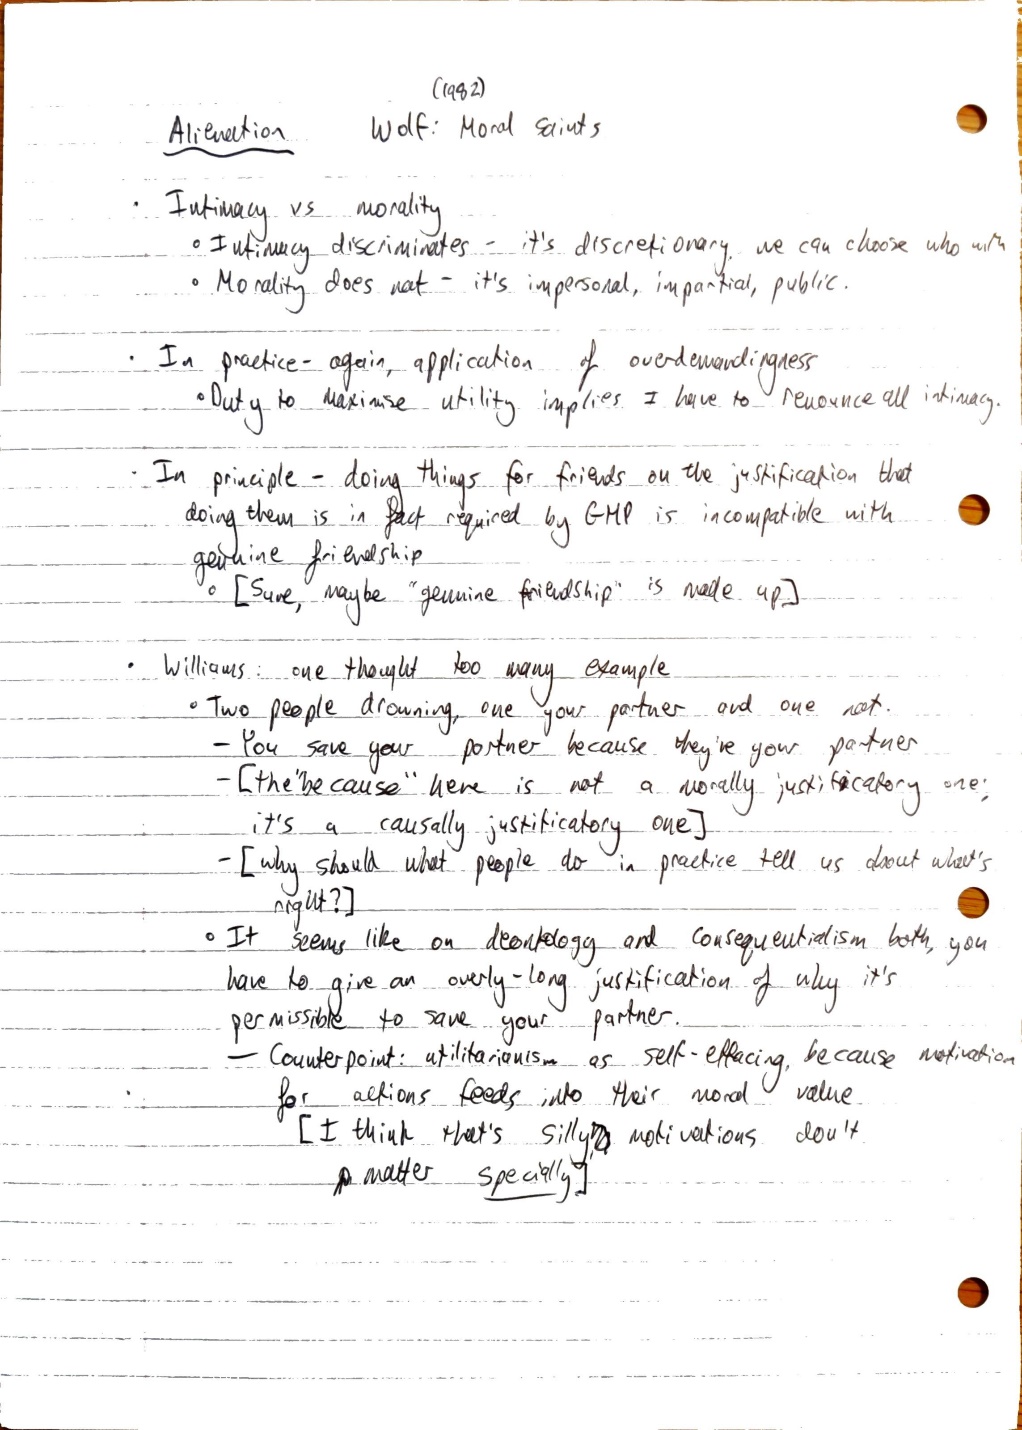 (1982)
Alienation Wolf: Moral Saints
· Intimacy vs morality
∘ Intimacy discriminates - it's discretionary, we can choose who with
∘ Morality does not - it's impersonal, impartial, public.
· In practice - again, application of overdemandingness
∘ Duty to maximise utility implies I have to renounce all intimacy.
· In principle - doing things for friends on the justification that
doing them is in fact required by GMP is incompatible with
genuine friendship
∘ [Sure, maybe "genuine friendship" is made up]
· Williams: one thought too many example
∘ Two people drowning, one your partner and one not.
- You save your partner because they're your partner
- [the "because" here is not a morally justificatory one;
it's a causally justificatory one]
- [why should what people do in practice tell us about what's
right?]
∘ It seems like on deontology and consequentialism both, you
have to give an overly-long justification of why it's
permissible to save your partner.
- Counterpoint: utilitarianism as self-effacing, because motivation
for actions feeds into their moral value
[I think that's silly, motivations don't
matter specially]